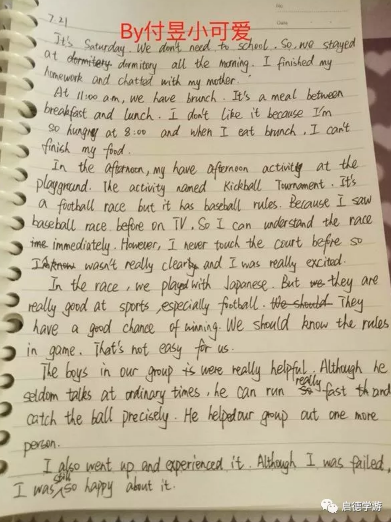 By付昱小可爱
7.21
It's Saturday. We don't need to school. So, we stayed
at dormitery dormitory all the morning. I finished my
homework and chatted with my mother.
At 11:00 am, we have brunch. It's a meal between
breakfast and lunch. I don't like it because I'm
so hungry at 8:00 and when I eat brunch, I can't
finish my food.
In the afternoon, my have afternoon activity at the
playground. The activity named Kickball Tournament. It's
a football race but it has baseball rules. Because I saw
baseball race before on TV. So I can understand the race
time immediately. However, I never touch the court before so
I wasn't really clearly and I was really excited.
In the race, we played with Japanese. But we they are
really good at sports, especially football. the should They
have a good chance of winning. We should know the rules
in game. That's not easy for us.
The boys in our group were really helpful. Although he
seldom talks at ordinary times, he can run so really fast and
catch the ball precisely. He helped our group out one more
person.
I also went up and experienced it. Although I was failed,
I was still so happy about it.
启德学游